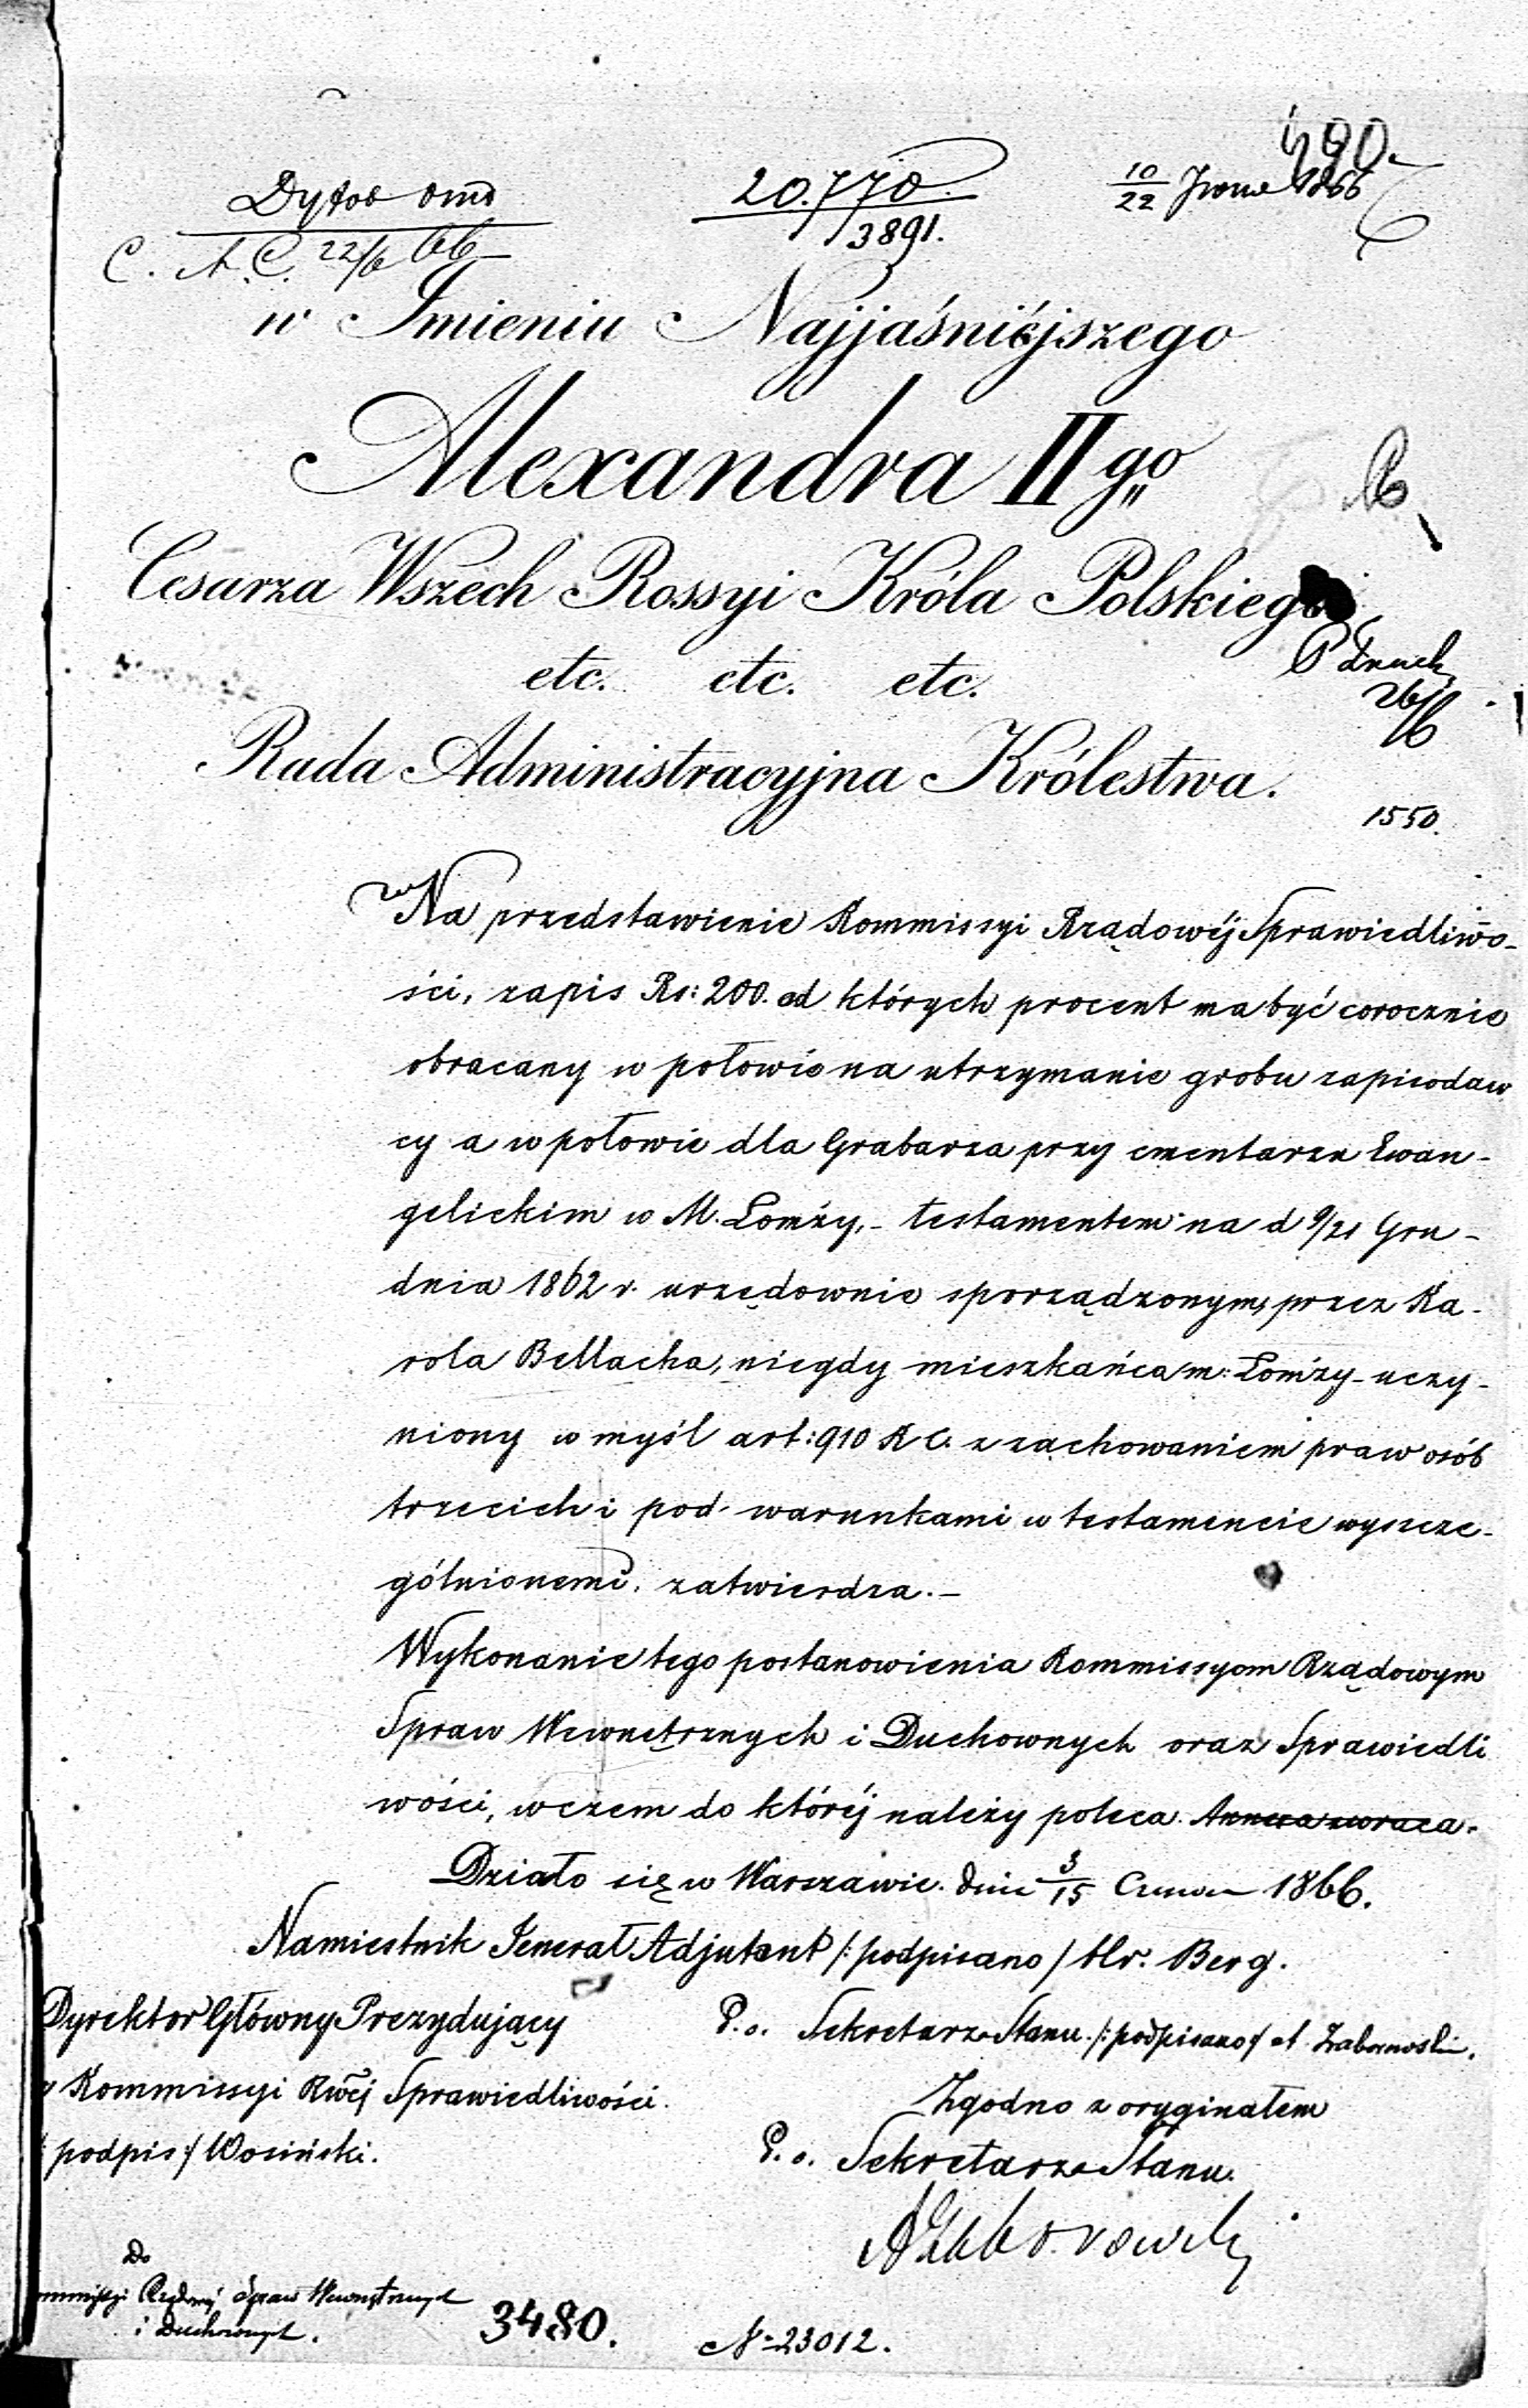 490.
20.770.
3891.
10/22 1866
C. A. C. 22/6 66
w Imieniu Najjaśniéjszego
Alexandra II go
Cesarza Wszech Rossyi Króla Polskiego
etc. etc. etc.
26/6
Rada Administracyjna Królestwa.
1550.
Na przedstawienie Kommissyi Rządowéj Sprawiedliwo-
ści, zapis Rs: 200. od których procent ma być corocznie
obracany w połowie na utrzymanie grobu zapisodaw
cy a w połowie dla Grabarza przy cmentarzu Ewan-
gelickim w M. Łomży,- testamentem na d 9/21 Gru-
dnia 1862 r. urzędownie sporządzonym, przez Ka-
rola Bellacha, niegdy mieszkańca m: Łomży- uczy-
niony w myśl art: 910 K C. z zachowaniem praw osób
trzecich i pod warunkami w testamencie wyszcze-
gólnionemi, zatwierdza.-
Wykonanie tego postanowienia Kommissyom Rządowym
Spraw Wewnętrznych i Duchownych oraz Sprawiedli
wości, w czem do któréj należy poleca.
Działo się w Warszawie. dnia 3/15 Czerwca 1866.
Namiestnik Jenerał Adjutant /: podpisano / Hr. Berg.
Dyrektor Główny Prezydujący
w Kommissyi Rwéj Sprawiedliwości.
podpis / Wosiński.
P. o. Sekretarza Stanu. /: podpisano / A. Zaborowski.
Zgodno z oryginałem
P. o. Sekretarza Stanu.
AZaborowski
Do
Kommissyi Rządowéj Spraw Wewnętrznych
i Duchownych.
3480.
N: 23012.